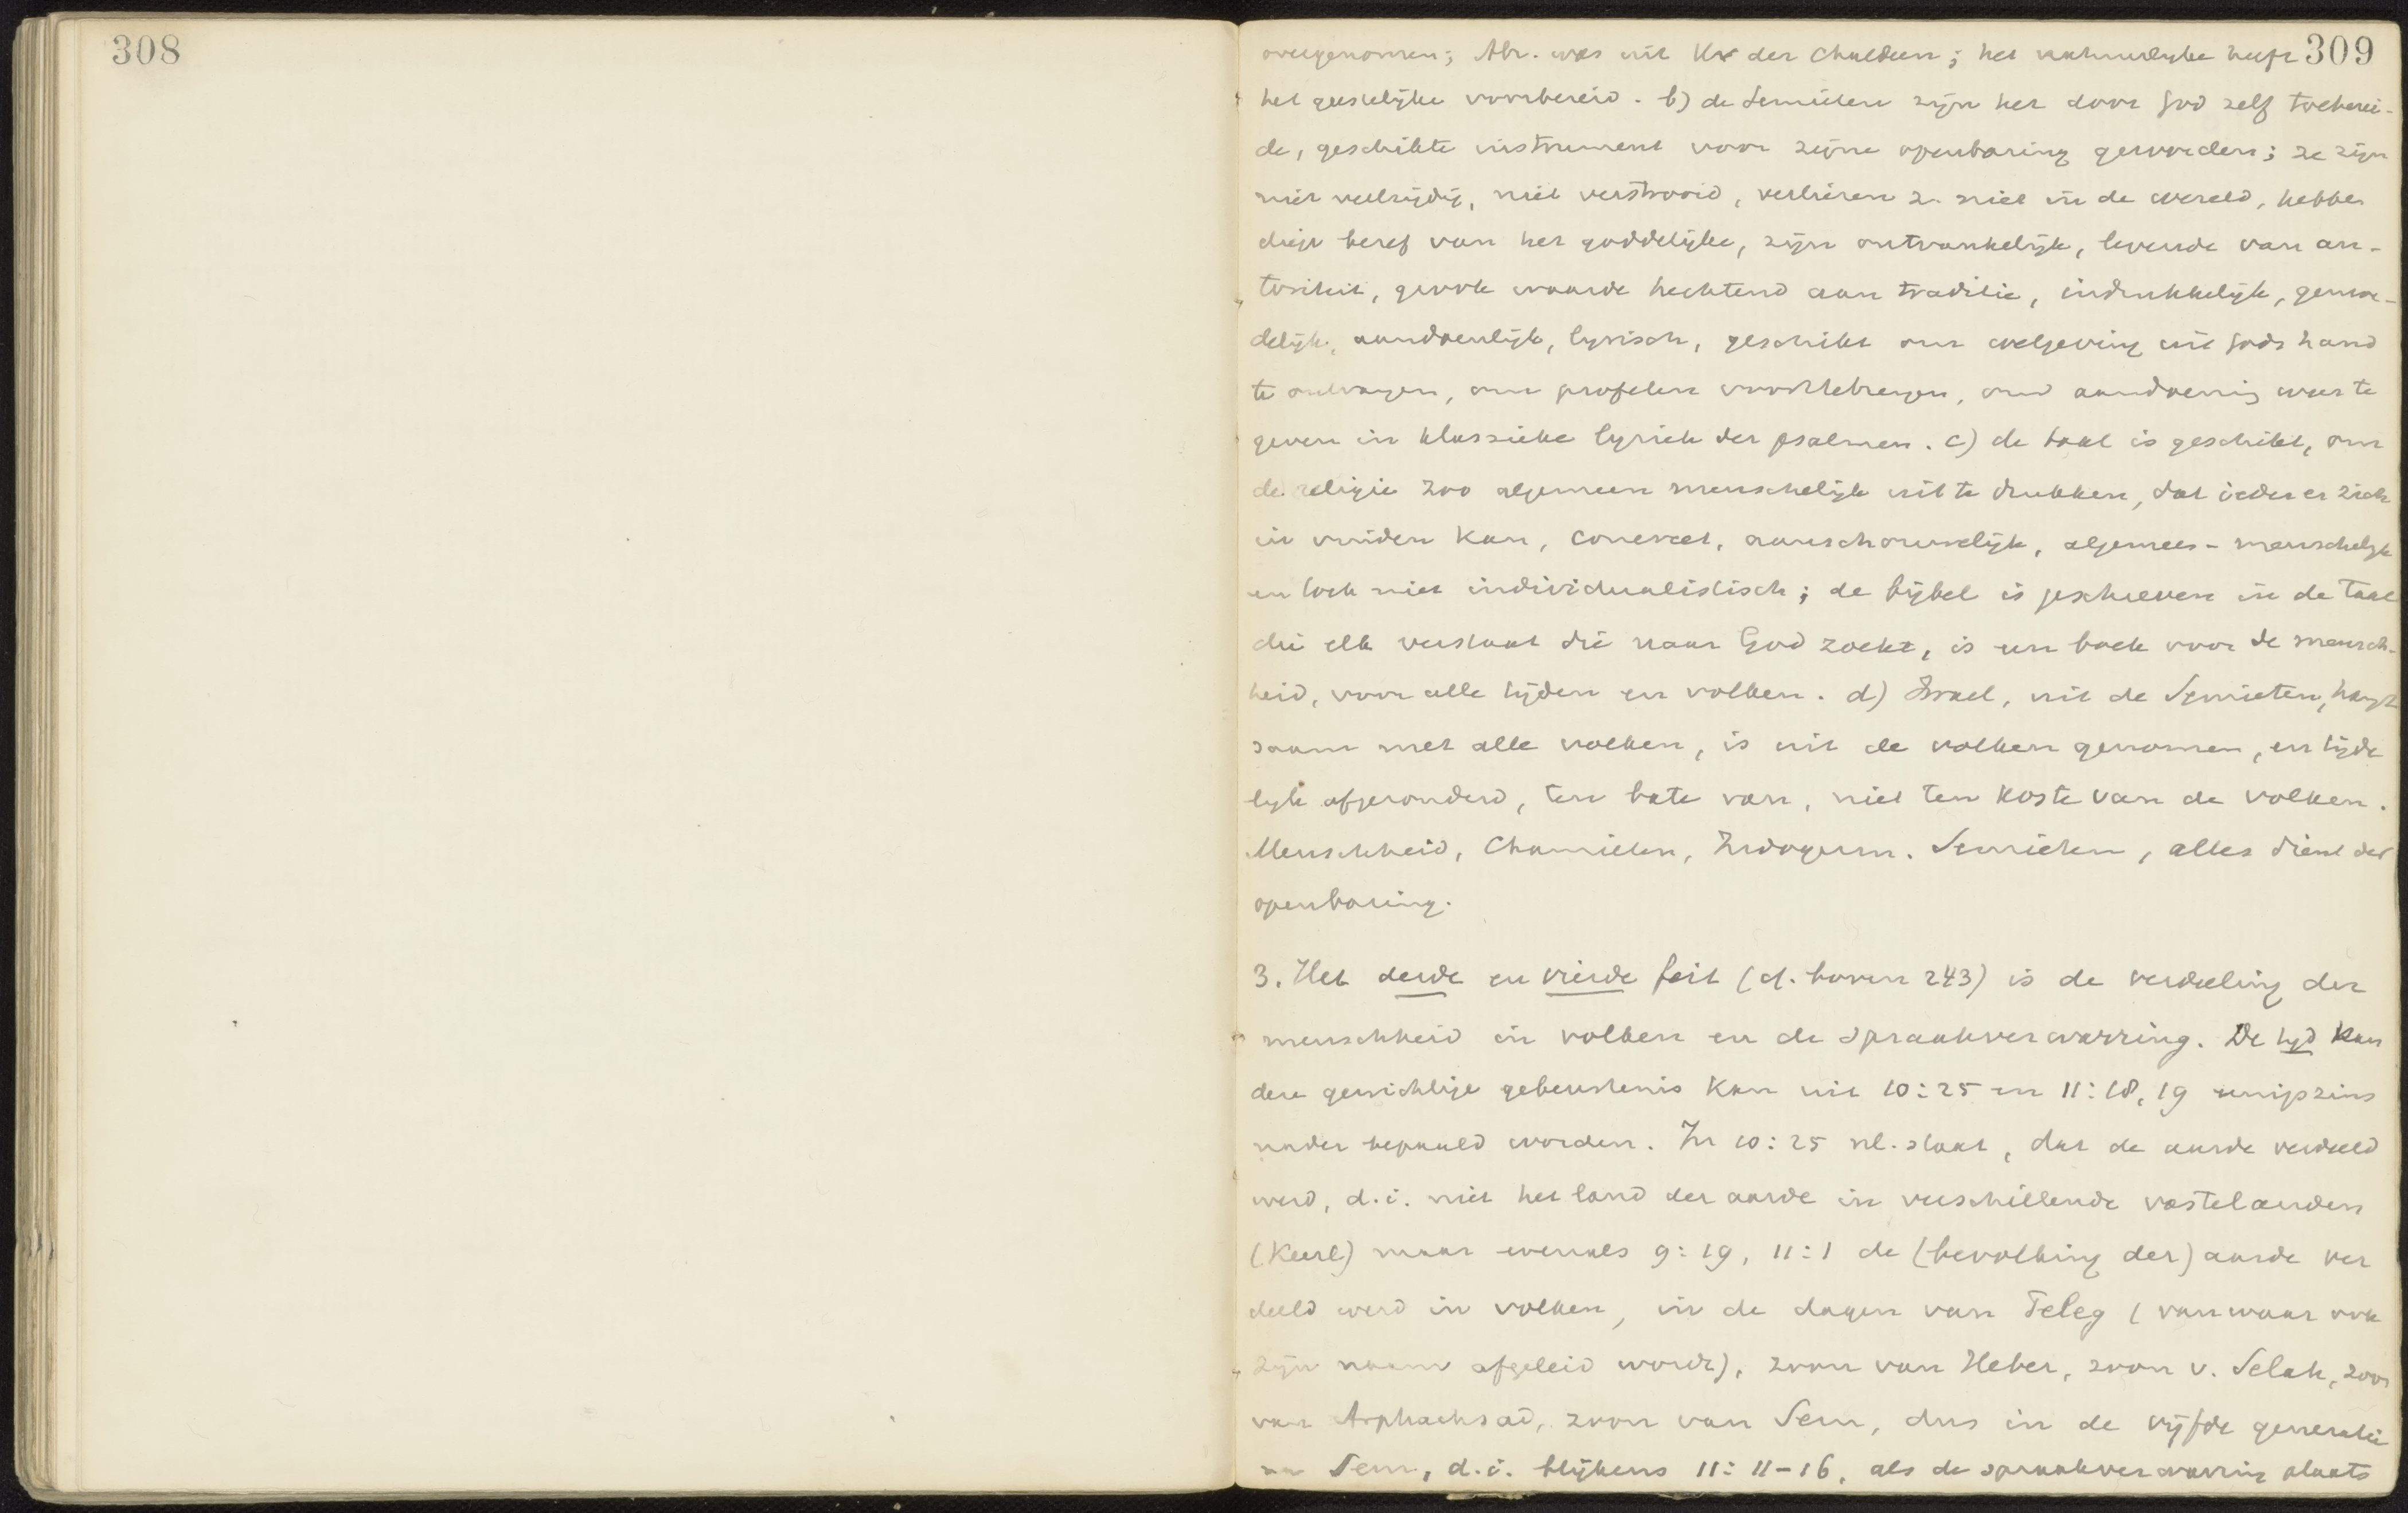 308
309
overgenomen; Abr. was uit Ur der Chaldeen; het natuurlijke heeft
het geestelijke voorbereid. b) de Semieten zijn het door God zelf toeberei-
de, geschikte instrument voor zijne openbaring geworden; ze zijn
niet veelzijdig, niet verstrooid, verliezen z. niet in de wereld, hebben
diep besef van het goddelijke, zijn ontvankelijk, levende van au-
toriteit, groote waarde hechtend aan traditie, indrukkelijk, gemoe-
delijk, aandoenlijk, lyrisch, geschikt om wetgeving uit Gods hand
te ontvangen, om profeten voorttebrengen, om aandoening weer te
geven in klassieke lyriek der psalmen. c) de taal is geschikt, om
de religie zoo algemeen menschelijk uit te drukken, dat ieder er zich
in vinden kan, concreet, aanschouwelijk, algemeen-menschelijk
en toch niet individualistisch; de bijbel is geschreven in de taal
die elk verstaat die naar God zoekt, is een boek voor de mensch-
heid, voor alle tijden en volken. d) Israel, uit de Semieten, hangt
saam met alle volken, is uit de volken genomen, en tijde
lijk afgezonderd, ten bate van, niet ten koste van de volken.
Menschheid, Chamieten, Indogerm. Semieten, alles dient der
openbaring.
3. Het derde en vierde feit (cf. boven 243) is de verdeeling der
menschheid in volken en de spraakverwarring. De tijd
dezer gewichtige gebeurtenis kan uit 10:25 en 11:18,19 eenigszins
nader bepaald worden. In 10:25 nl. staat, dat de aarde verdeeld
werd, d.i. niet het land der aarde in verschillende vastelanden
(Keerl) maar evenals 9:19, 11:1 de (bevolking der) aarde ver
deeld werd in volken, in de dagen van Peleg (vanwaar ook
zijn naam afgeleid wordt), zoon van Heber, zoon v. Selah, zoon
van Arphachsad, zoon van Sem, dus in de vijfde generatie
na Sem, d.i. blijkens 11:11-16, als de spraakverwarring plaats